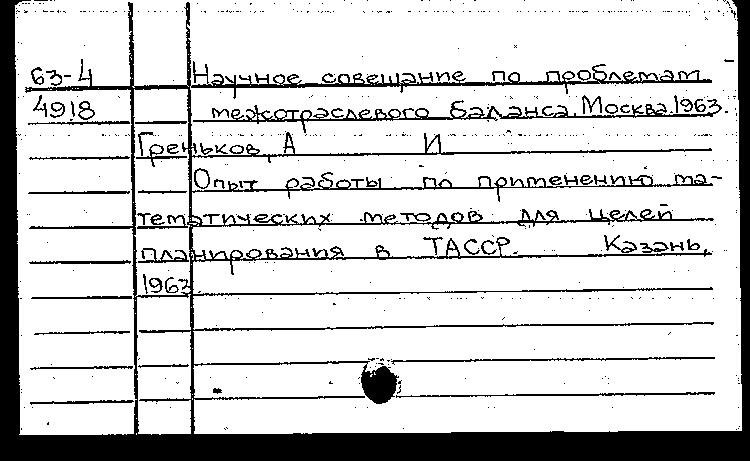 63-4 Научное совещание по проблемам
4918 межотраслевого баланса. Москва. 1963.
Греньков, А И
Опыт работы по применению ма-
тематических методов для целей
планирования в ТАССР. Казань,
1963